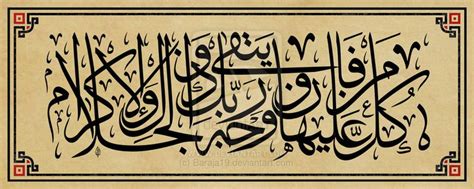 كُلُّ مَنْ عَلَيْهَا فَانٍ وَيَبْقَى وَجْهُ رَبِّكَ ذُو الْجَلَالِ وَالْإِكْرَامِ
(c) Baraja19.deviantart.com